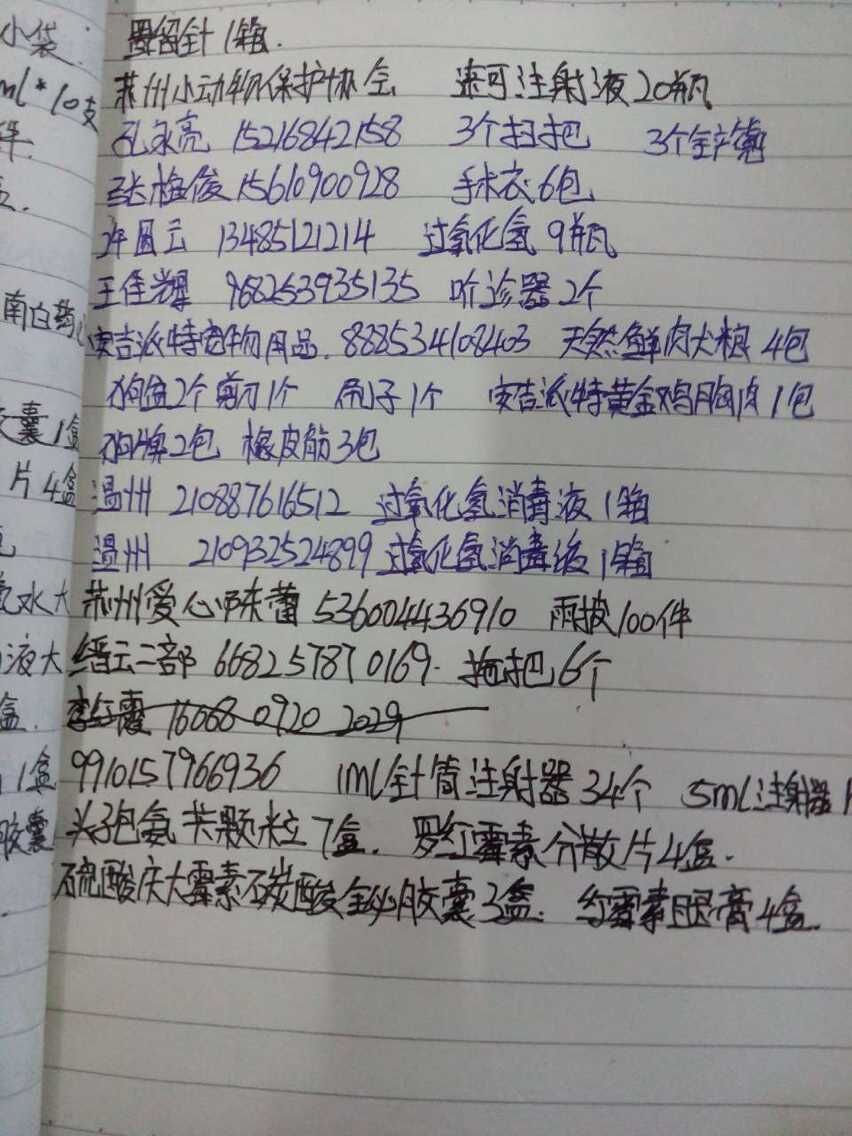 小袋. 置留针1箱.
ml*10支 苏州小动物保护协会 速可注射液20瓶
件. 孔永亮 15216842158 3个扫把 3个铲
张 俊 15610900928 手术衣6包
圆云 13485121214 过氧化氢9瓶
王佳 968253935135 听诊器2个
南白药 安吉派特宠物用品. 888534108403 天然鲜肉犬粮4包
狗盆2个 剪刀1个 刷子1个 安吉派特黄金鸡胸肉1包
胶囊1盒 狗牌2包 橡皮筋3包
片4盒 温州 210887616512 过氧化氢消毒液1箱
温州 210932524899 过氧化氢消毒液1箱
水大 苏州爱心陈蕾 536004436910 雨披100件
液大 缙云二部 668257870169. 拖把6个
盒. 李红霞 16068 0920 2029
1盒 9910157966936 1ml针筒注射器34个 5ml注射器1
胶囊 头孢氨苄颗粒7盒. 罗红霉素分散片4盒.
硫酸庆大霉素碳酸铋胶囊3盒. 红霉素眼膏4盒.